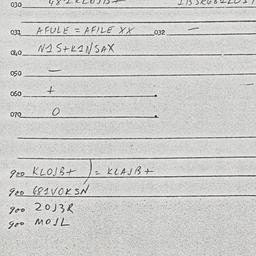 030
031 AFULE = AFILE XX 032 —
040 N1S+K1N/SAX
050 —
060 +
070 0
900 KLOJB+ ) = KLAJB+
900 681VOKSN
900 20J3R
900 MOJL